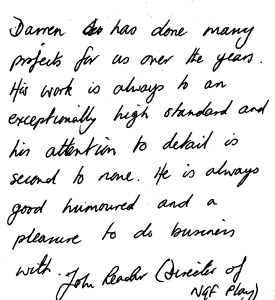 Darren has done many
projects for us over the years.
His work is always to an
exceptionally high standard and
his attention to detail is
second to none. He is always
good humoured and a
pleasure to do business
with. John (Director of
NGF Play)